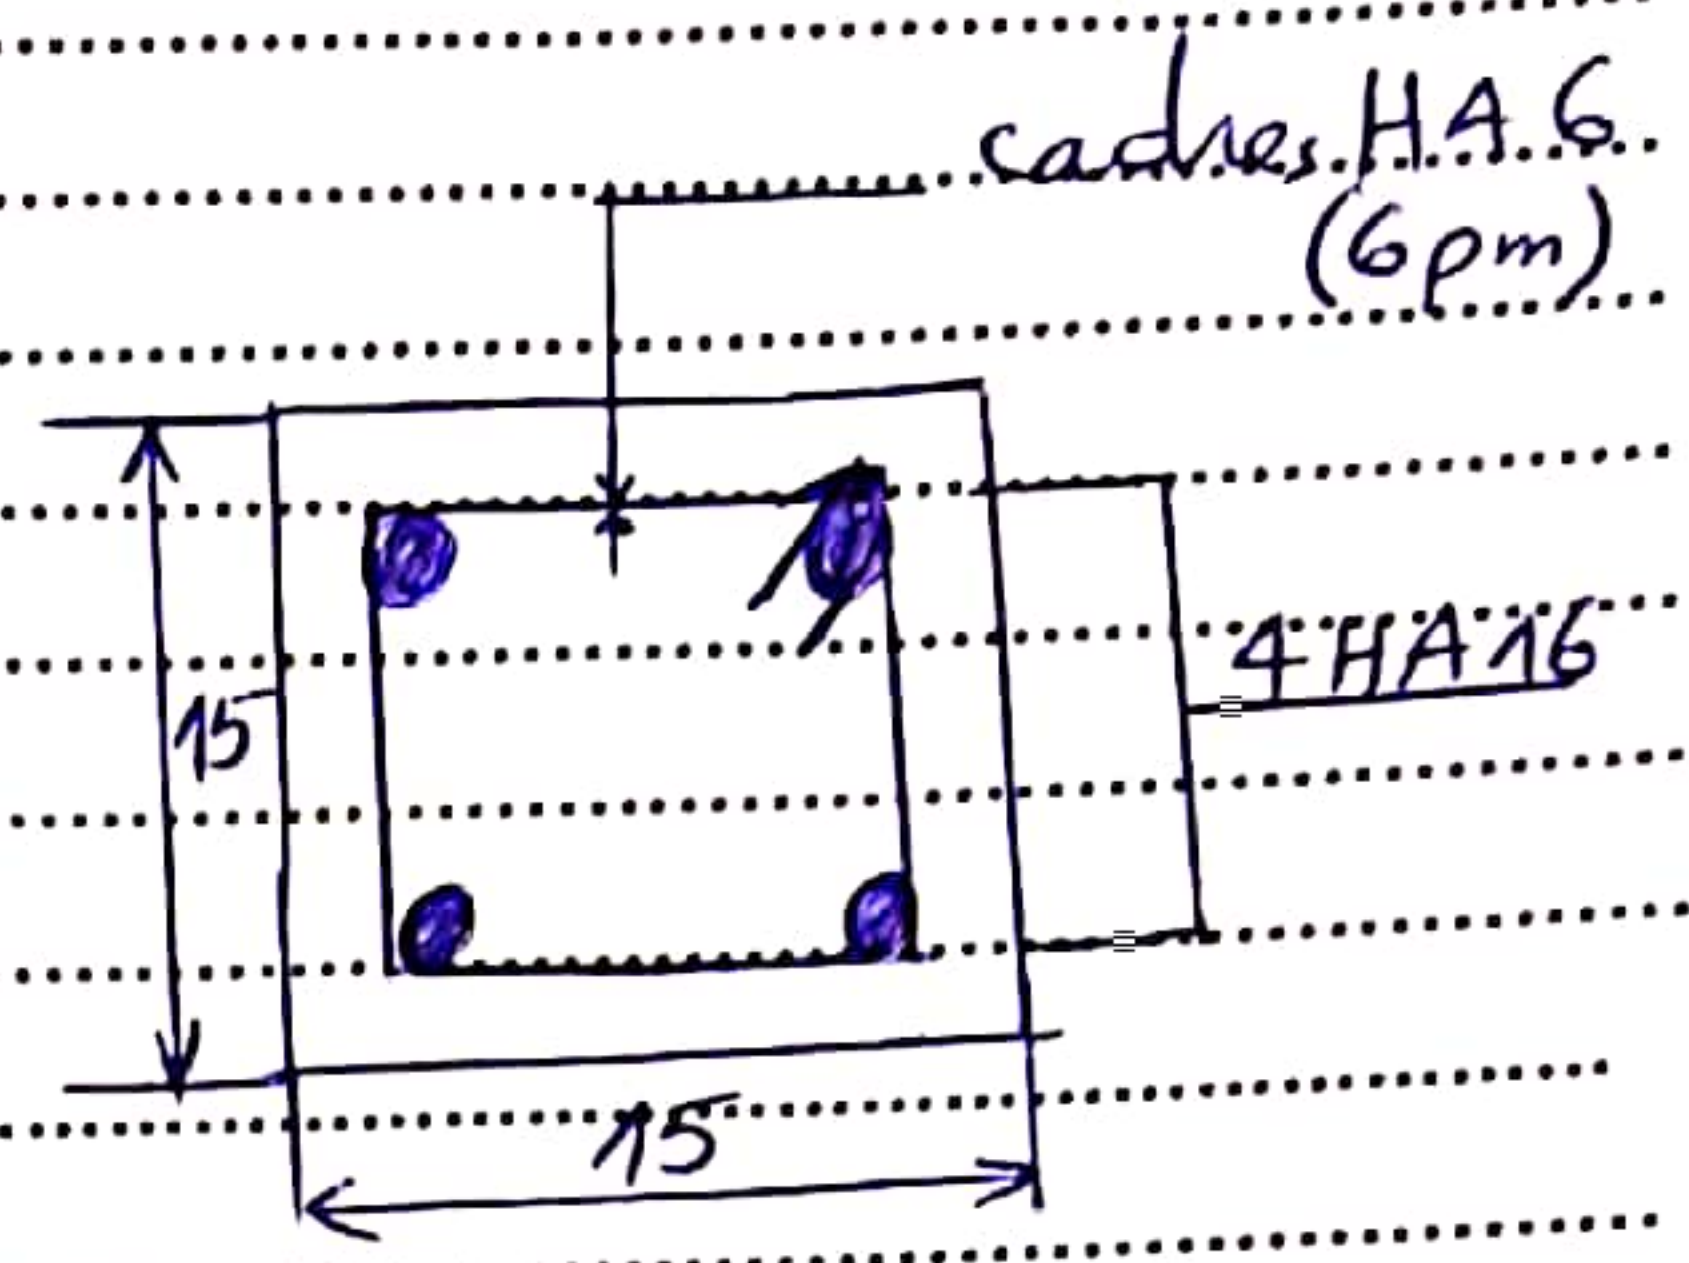 cadres HA 6
(6pm)
4 HA 16
15
15